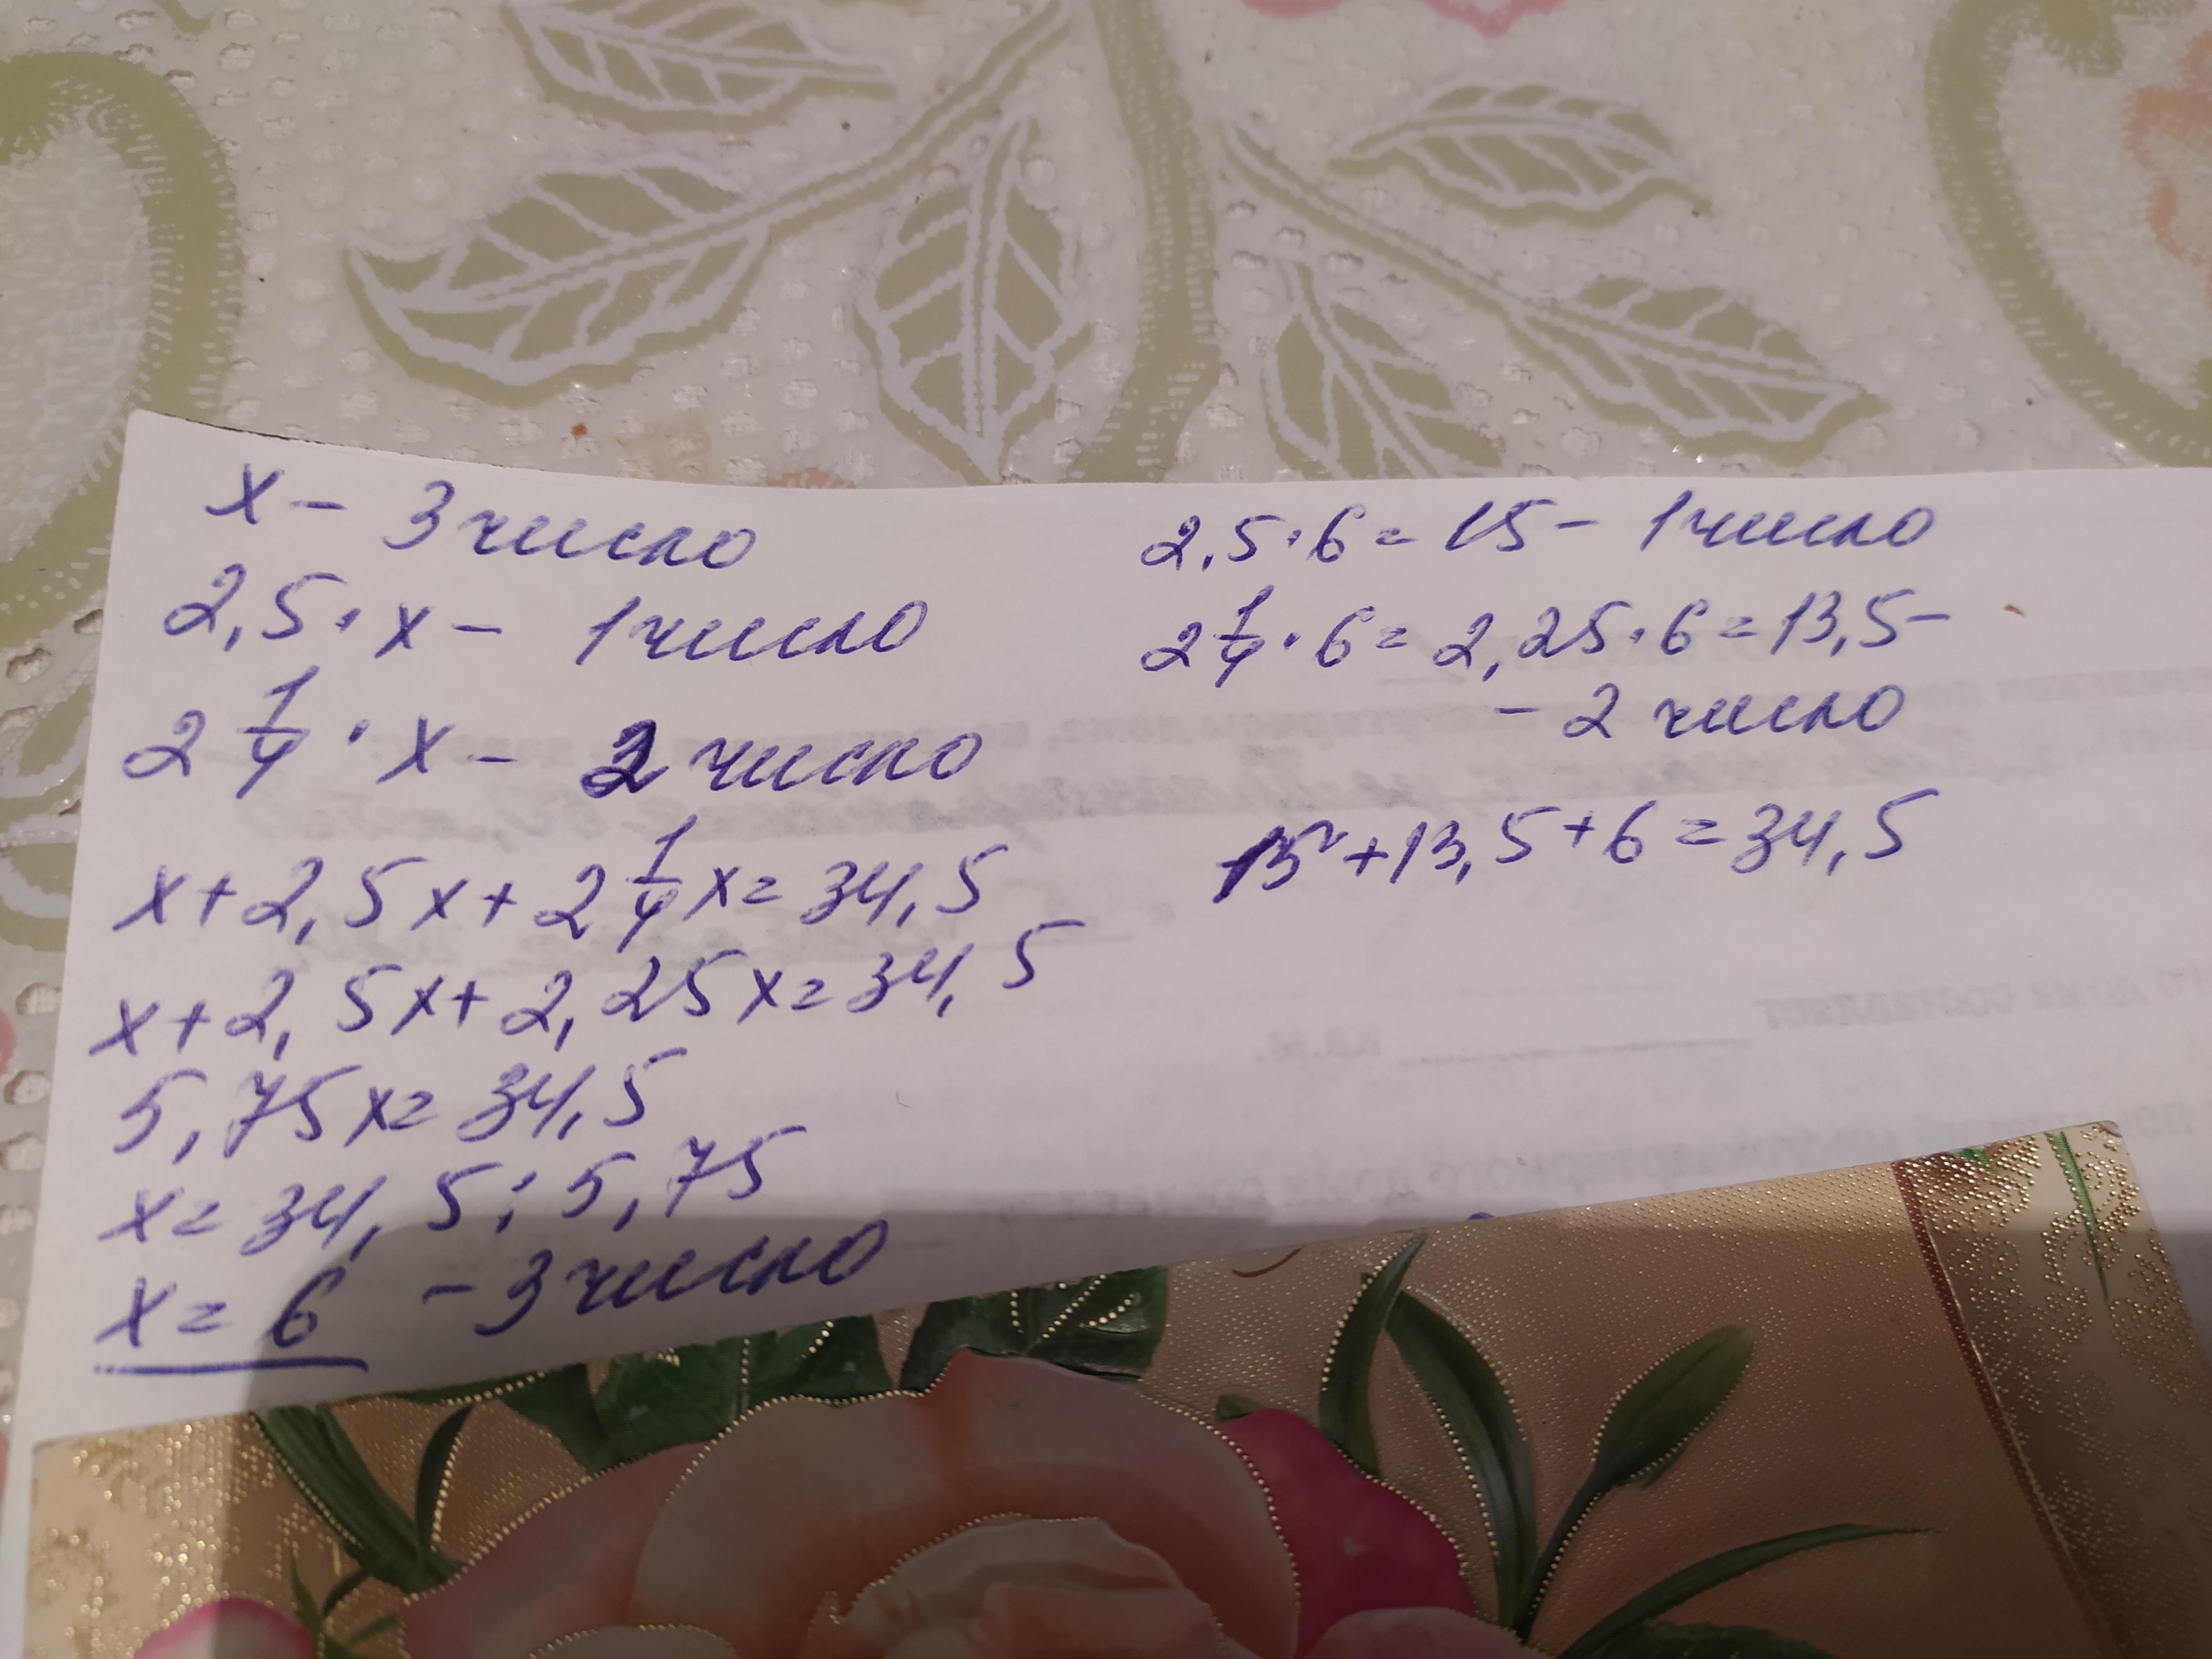 x - 3 число
2,5 · x - 1 число
2 1/4 · x - 2 число
x + 2,5x + 2 1/4 x = 34,5
x + 2,5x + 2,25x = 34,5
5,75x = 34,5
x = 34,5 : 5,75
x = 6 - 3 число
2,5 · 6 = 15 - 1 число
2 1/4 · 6 = 2,25 · 6 = 13,5 -
- 2 число
15 + 13,5 + 6 = 34,5